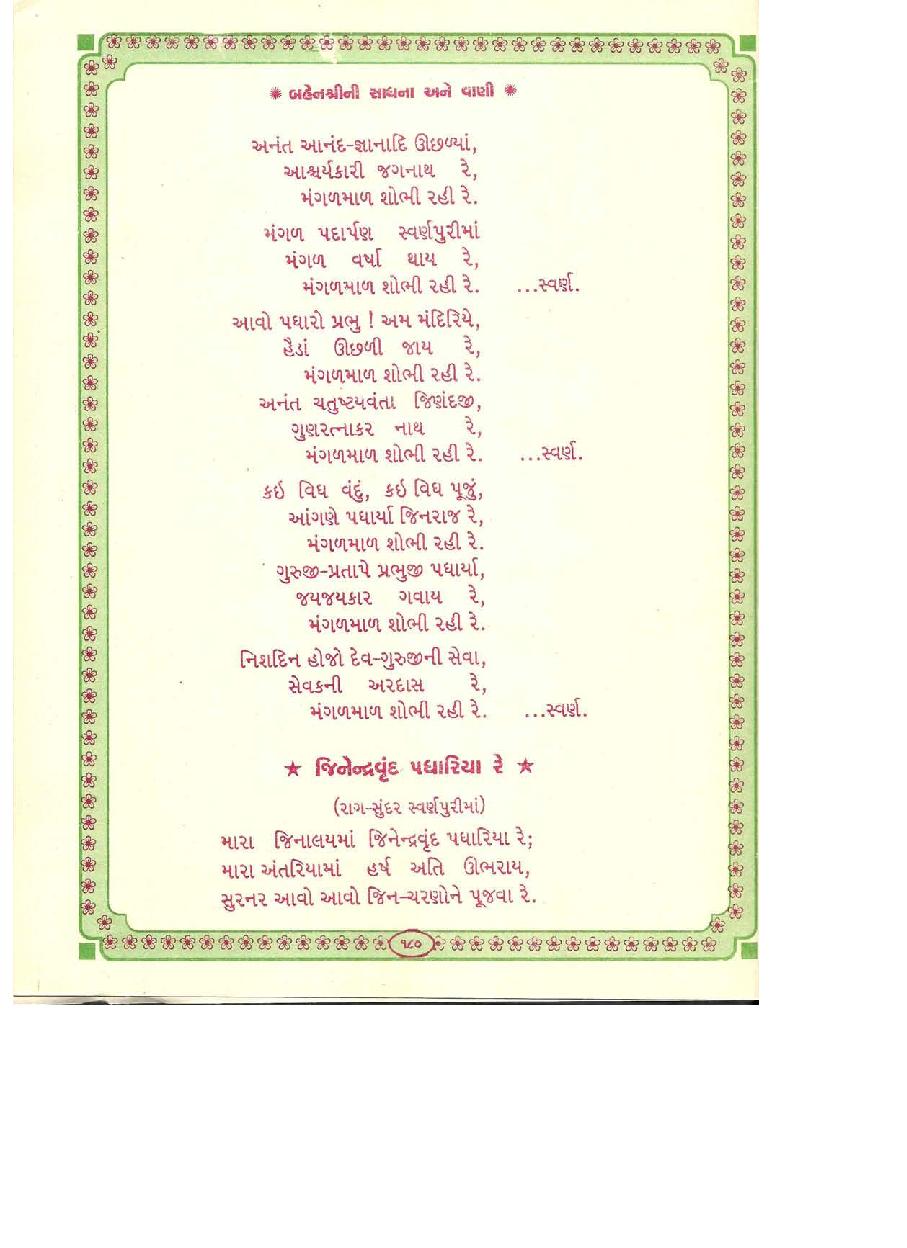 ✹ બહેનશ્રીની સાધના અને વાણી ✹
અનંત આનંદ-જ્ઞાનાદિ ઊછળ્યાં,
આશ્ચર્યકારી જગનાથ રે,
મંગળમાળ શોભી રહી રે.
મંગળ પદાર્પણ સ્વર્ણપુરીમાં
મંગળ વર્ષા થાય રે,
મંગળમાળ શોભી રહી રે. ...સ્વર્ણ.
આવો પધારો પ્રભુ ! અમ મંદિરિયે,
હૈડાં ઊછળી જાય રે,
મંગળમાળ શોભી રહી રે.
અનંત ચતુષ્ટયવંતા જિણંદજી,
ગુણરત્નાકર નાથ રે,
મંગળમાળ શોભી રહી રે. ...સ્વર્ણ.
કઇ વિધ વંદું, કઇ વિધ પૂજું,
આંગણે પધાર્યા જિનરાજ રે,
મંગળમાળ શોભી રહી રે.
ગુરુજી-પ્રતાપે પ્રભુજી પધાર્યા,
જયજયકાર ગવાય રે,
મંગળમાળ શોભી રહી રે.
નિશદિન હોજો દેવ-ગુરુજીની સેવા,
સેવકની અરદાસ રે,
મંગળમાળ શોભી રહી રે. ...સ્વર્ણ.
★ જિનેન્દ્રવૃંદ પધારિયા રે ★
(રાગ-સુંદર સ્વર્ણપુરીમાં)
મારા જિનાલયમાં જિનેન્દ્રવૃંદ પધારિયા રે;
મારા અંતરિયામાં હર્ષ અતિ ઊભરાય,
સુરનર આવો આવો જિન-ચરણોને પૂજવા રે.
૧૮૦